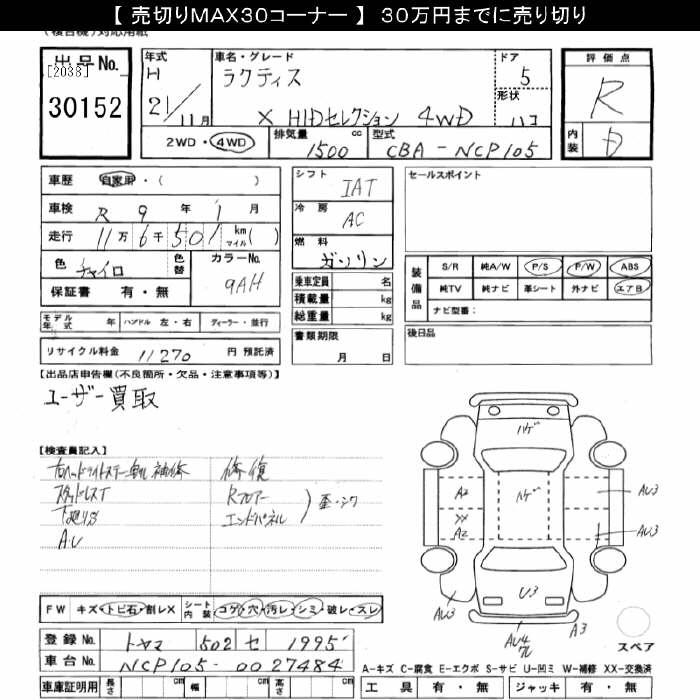 【 売切りMAX30コーナー 】 30万円までに売り切り
(複合機)対応用紙
出品No.
[2038]
30152
年式
H
21/11月
車名・グレード
ラクティス
X HIDセレクション 4WD
ドア
5
形状
ハコ
2WD・4WD
排気量
1500 cc
型式
CBA-NCP105
評価点
R
内装
D
車歴 自家用・( )
車検 R 9 年 1 月
走行 11万6千501 km マイル( )
色 チャイロ
色替
カラーNo.
9AH
保証書 有・無
モデル年式 年 ハンドル 左・右 ディーラー・並行
リサイクル料金 11270 円 預託済
シフト
IAT
冷房
AC
燃料
ガソリン
乗車定員 名
積載量 kg
総重量 kg
書類期限
月 日
セールスポイント
装備品
S/R 純A/W P/S P/W ABS
純TV 純ナビ 革シート 外ナビ エアB
ナビ型番:
後日品
【出品店申告欄(不良箇所・欠品・注意事項等)】
ユーザー買取
【検査員記入】
右ヘッドライトステー車化 補修
スタッドレスT
下廻りS
AU
修復
Rフロアー
エンドパネル
歪・シワ
ハゲ
ハゲ
A2
XX
A2
AU3
AU3
U3
AU3
AU4
ワレ
A3
スペア
FW キズ・トビ石・割レX
シート内装 コゲ・穴・汚レ・シミ・破レ・スレ
登録No. トヤマ 502 セ 1995
車台No. NCP105-0027484
車庫証明用 長さ cm 幅 cm 高さ cm
A-キズ C-腐食 E-エクボ S-サビ U-凹ミ W-補修 XX-交換済
工具 有・無 ジャッキ 有・無